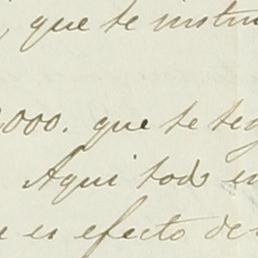 , que te instru
,000. que te seg
Aqui todo e
e es efecto de